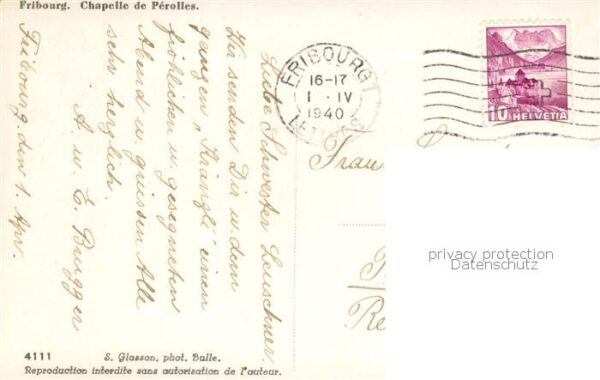 Fribourg. Chapelle de Pérolles.
Liebe Schwester Leuschner.
Wir senden Dir u. dem
ganzen "Kränzli" einen
fröhlichen u. gesegneten
Abend u. grüssen Alle
sehr herzlich.
A. u. E. Brugger
Fribourg, den 1. Apr.
FRIBOURG 1
16-17
1. IV
1940
10 HELVETIA
Frau
privacy protection
Datenschutz
4111 S. Glasson, phot. Bulle.
Reproduction interdite sans autorisation de l'auteur.